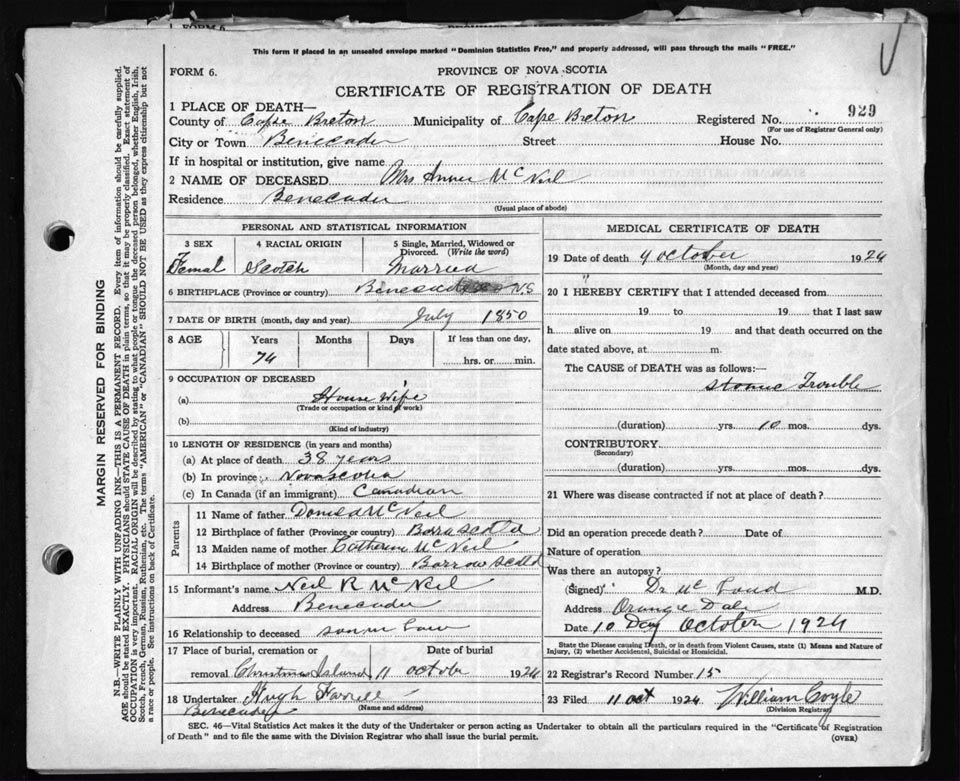 1 FORM 6
This form if placed in an unsealed envelope marked "Dominion Statistics Free," and properly addressed, will pass through the mails "FREE."
FORM 6.
PROVINCE OF NOVA SCOTIA
CERTIFICATE OF REGISTRATION OF DEATH
1 PLACE OF DEATH—
County of Cape Breton Municipality of Cape Breton Registered No. 929
(For use of Registrar General only)
City or Town Benecadie Street House No.
If in hospital or institution, give name
2 NAME OF DECEASED Mrs Annie McNeil
Residence Benecadie
(Usual place of abode)
PERSONAL AND STATISTICAL INFORMATION
3 SEX 4 RACIAL ORIGIN 5 Single, Married, Widowed or Divorced. (Write the word)
Femal Scotch Married
6 BIRTHPLACE (Province or country) Benecadie N.S
7 DATE OF BIRTH (month, day and year) July 1850
8 AGE Years Months Days If less than one day,
74 hrs. or min.
9 OCCUPATION OF DECEASED
(a) House Wife
(Trade or occupation or kind of work)
(b)
(Kind of industry)
10 LENGTH OF RESIDENCE (in years and months)
(a) At place of death 38 years
(b) In province Novascotia
(c) In Canada (if an immigrant) Canadian
Parents
11 Name of father Donald McNeil
12 Birthplace of father (Province or country) Barra Scotld
13 Maiden name of mother Catherine McNeil
14 Birthplace of mother (Province or country) Barrow Scotld
15 Informant's name Neil R McNeil
Address Benecadie
16 Relationship to deceased son in law
17 Place of burial, cremation or removal Date of burial
Christmas Island 11 october 1924
18 Undertaker Hugh Farrell
(Name and address)
Benecadie
MEDICAL CERTIFICATE OF DEATH
19 Date of death 9 october 1924
(Month, day and year)
20 I HEREBY CERTIFY that I attended deceased from
19 to 19 that I last saw
h alive on 19 and that death occurred on the
date stated above, at m.
The CAUSE of DEATH was as follows:—
Trouble
(duration) yrs. 10 mos. dys.
CONTRIBUTORY
(Secondary)
(duration) yrs. mos. dys.
21 Where was disease contracted if not at place of death?
Did an operation precede death? Date of
Nature of operation
Was there an autopsy?
(Signed) Dr Mc M.D.
Address Orange Dale
Date 10 Day October 1924
State the Disease causing Death, or in death from Violent Causes, state (1) Means and Nature of Injury, (2) whether Accidental, Suicidal or Homicidal.
22 Registrar's Record Number 15
23 Filed 11 oct 1924 William Coyle
(Division Registrar)
SEC. 46—Vital Statistics Act makes it the duty of the Undertaker or person acting as Undertaker to obtain all the particulars required in the "Certificate of Registration
of Death" and to file the same with the Division Registrar who shall issue the burial permit.
(OVER)
MARGIN RESERVED FOR BINDING
N.B.—WRITE PLAINLY WITH UNFADING INK—THIS IS A PERMANENT RECORD. Every item of information should be carefully supplied.
AGE should be stated EXACTLY. PHYSICIANS should STATE CAUSE OF DEATH in plain terms, so that it may be properly classified. Exact statement of
OCCUPATION is very important. RACIAL ORIGIN will be described by stating to what people or tongue the deceased person belonged, whether English, Irish,
Scotch, French, German, Russian, Ruthenian, etc. The terms "AMERICAN" or "CANADIAN" SHOULD NOT BE USED as they express citizenship but not
a race or people. See instructions on back of Certificate.